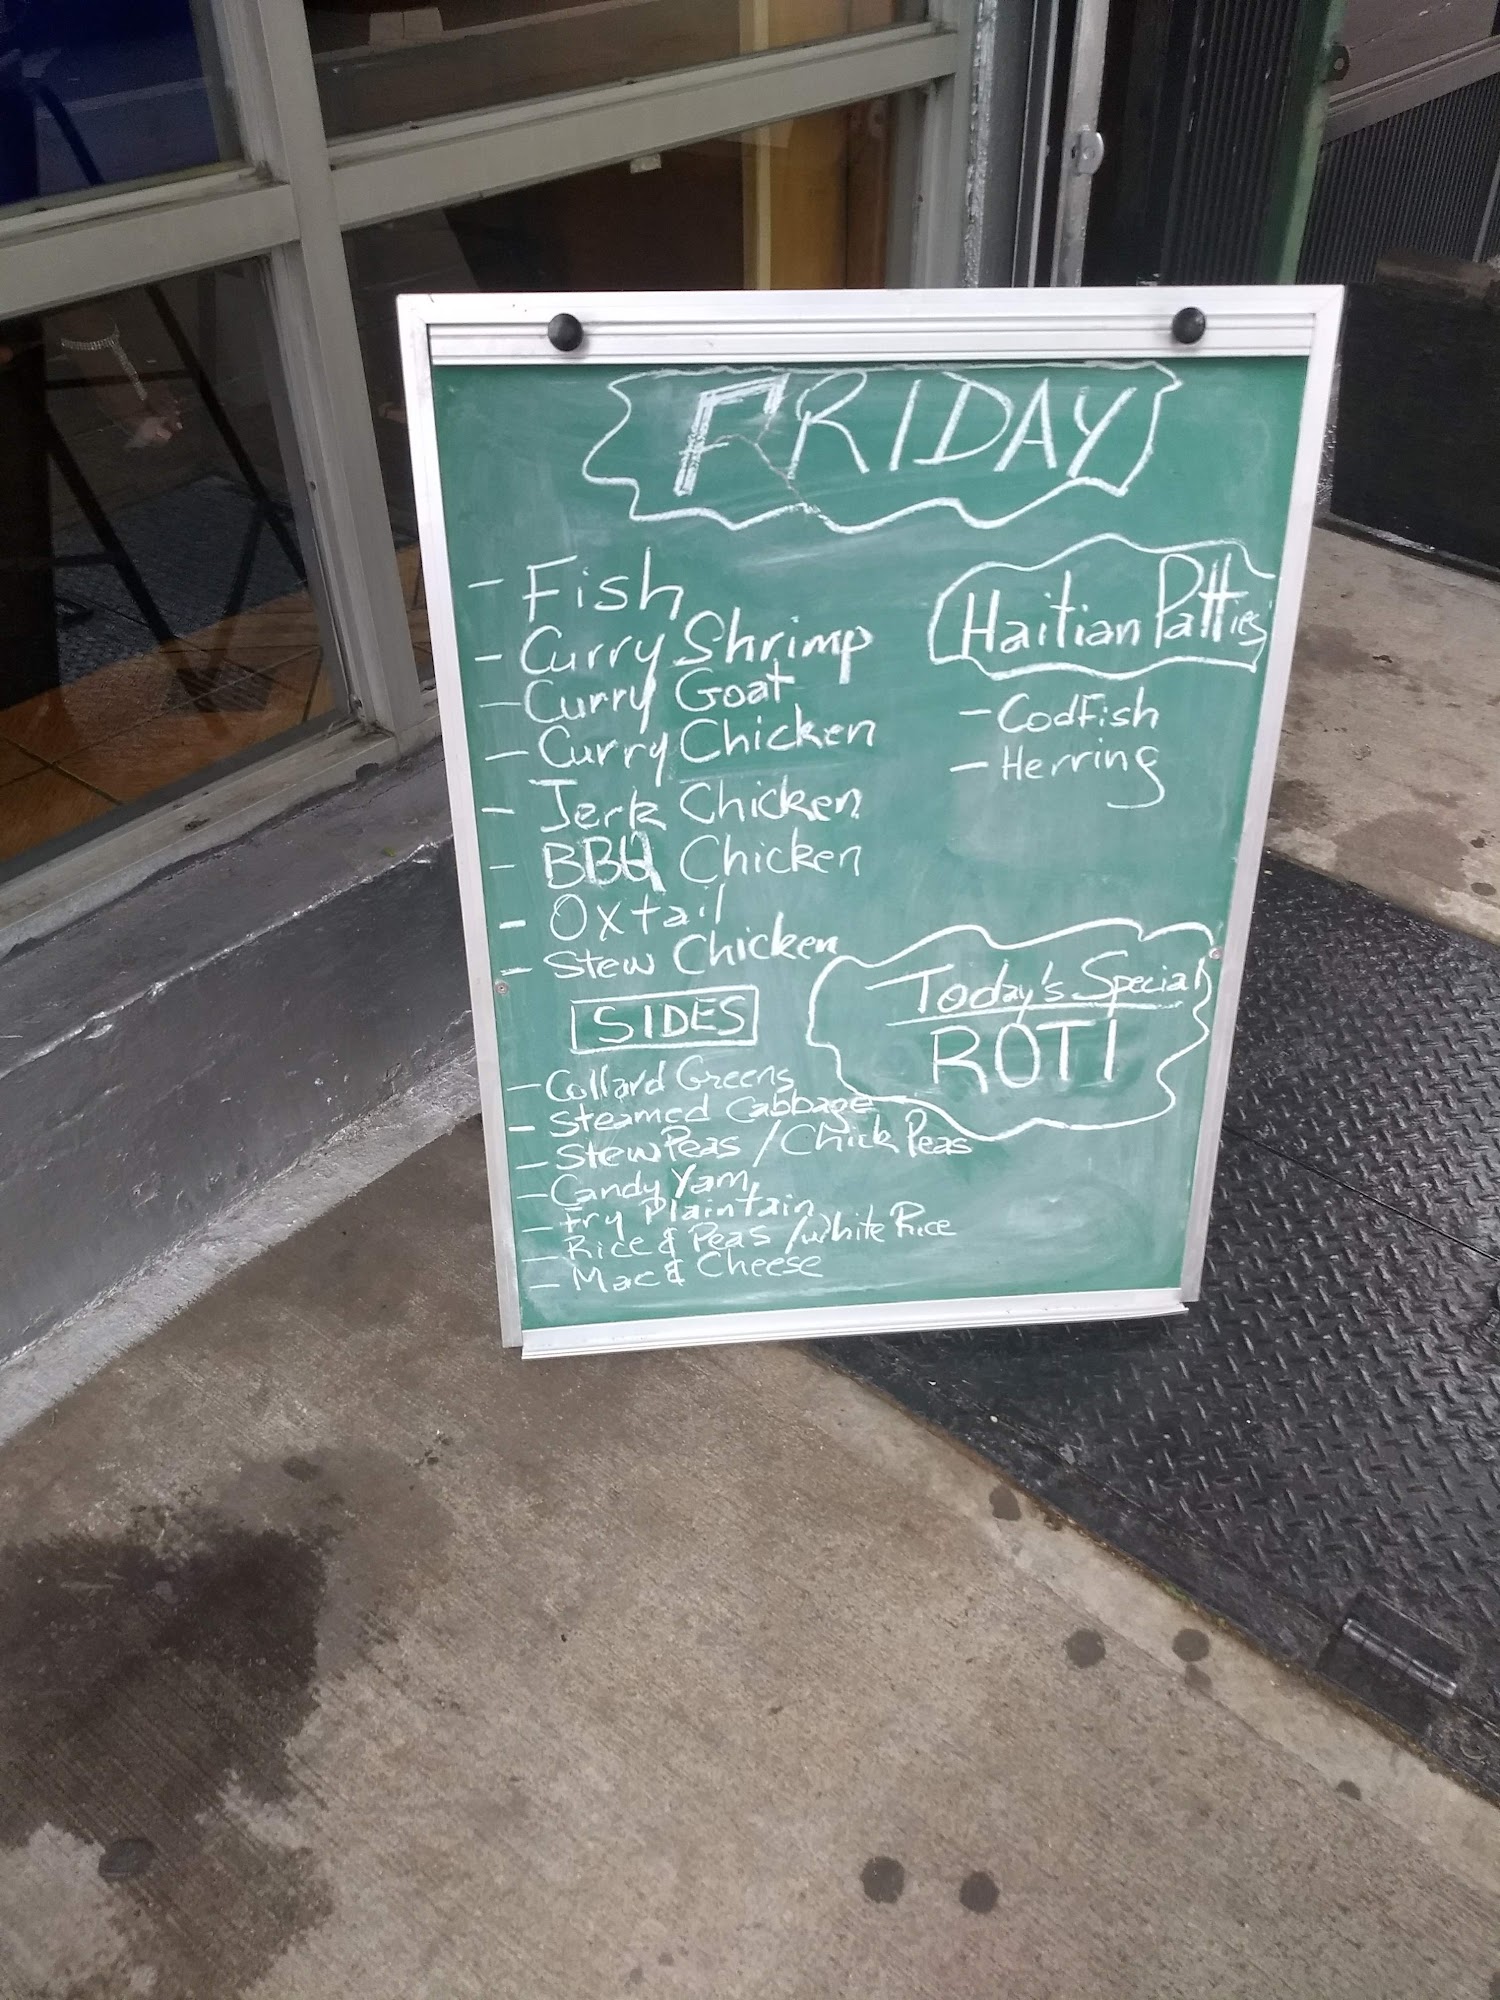 FRIDAY
- Fish
- Curry Shrimp
- Curry Goat
- Curry Chicken
- Jerk Chicken
- BBQ Chicken
- Oxtail
- Stew Chicken
SIDES
- Collard Greens
- Steamed Cabbage
- Stew Peas / Chick Peas
- Candy Yam
- Fry Plaintain
- Rice & Peas / white Rice
- Mac & Cheese
Haitian Patties
- CodFish
- Herring
Today's Special
ROTI